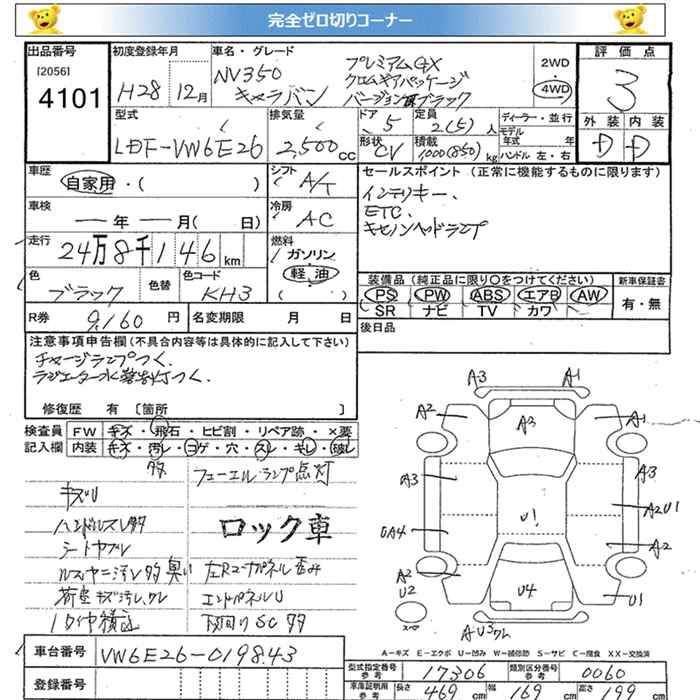 完全ゼロ切りコーナー
出品番号
[2056]
4101
初度登録年月
H28 12月
車名・グレード
NV350
キャラバン
プレミアムGX
クロムギアパッケージ
ブラック
2WD
4WD
評価点
3
外装 内装
D D
型式
LDF-VW6E26
排気量
2,500cc
ドア
5
定員
2(5)人
ディーラー・並行
モデル年式 年
ハンドル 左・右
形状
CV
積載
1000(850)kg
車歴
自家用・( )
シフト
A/T
車検
年 月( 日)
冷房
AC
走行
24万8千146km
燃料
ガソリン
軽油
( )
色
ブラック
色替
色コード
KH3
R券
9,160円
名変期限 月 日
セールスポイント(正常に機能するものに限ります)
インテリキー、
ETC.
キセノンヘッドランプ
装備品(純正品に限り〇をつけてください)
新車保証書
PS PW ABS エアB AW
SR ナビ TV カワ
有・無
後日品
注意事項申告欄(不具合内容等は具体的に記入して下さい)
チャージランプつく、
修復歴 有 [箇所 ]
検査員
記入欄
FW キズ・飛石・ヒビ割・リペア跡・×要
内装 キズ・汚レ・コゲ・穴・スレ・キレ・破レ
多
フューエルランプ点灯
キズU
ハンドルスレ多
ロック車
シートヤブレ
臭い
左Rコーナーパネル歪み
荷室キズ汚レ、
エンドパネルU
下回りSC多
A3 A1
A2 A3 A1
A3 A3
U1 A2U1
UA4 A2
A2 U2
U4 U1
スペア
A-キズ E-エクボ U-凹み W-補修跡 S-サビ C-腐食 XX-交換済
車台番号
VW6E26-019843
登録番号
型式指定番号
参考
17306
類別区分番号
参考
0060
車庫証明用
参考
長さ 469cm 幅 169cm 高さ 199cm